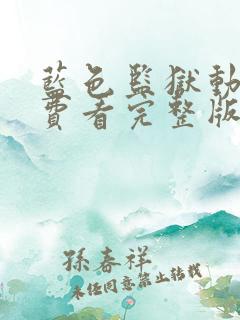 藍色監獄動
費看完整版
孫春祥
未經同意禁止轉載